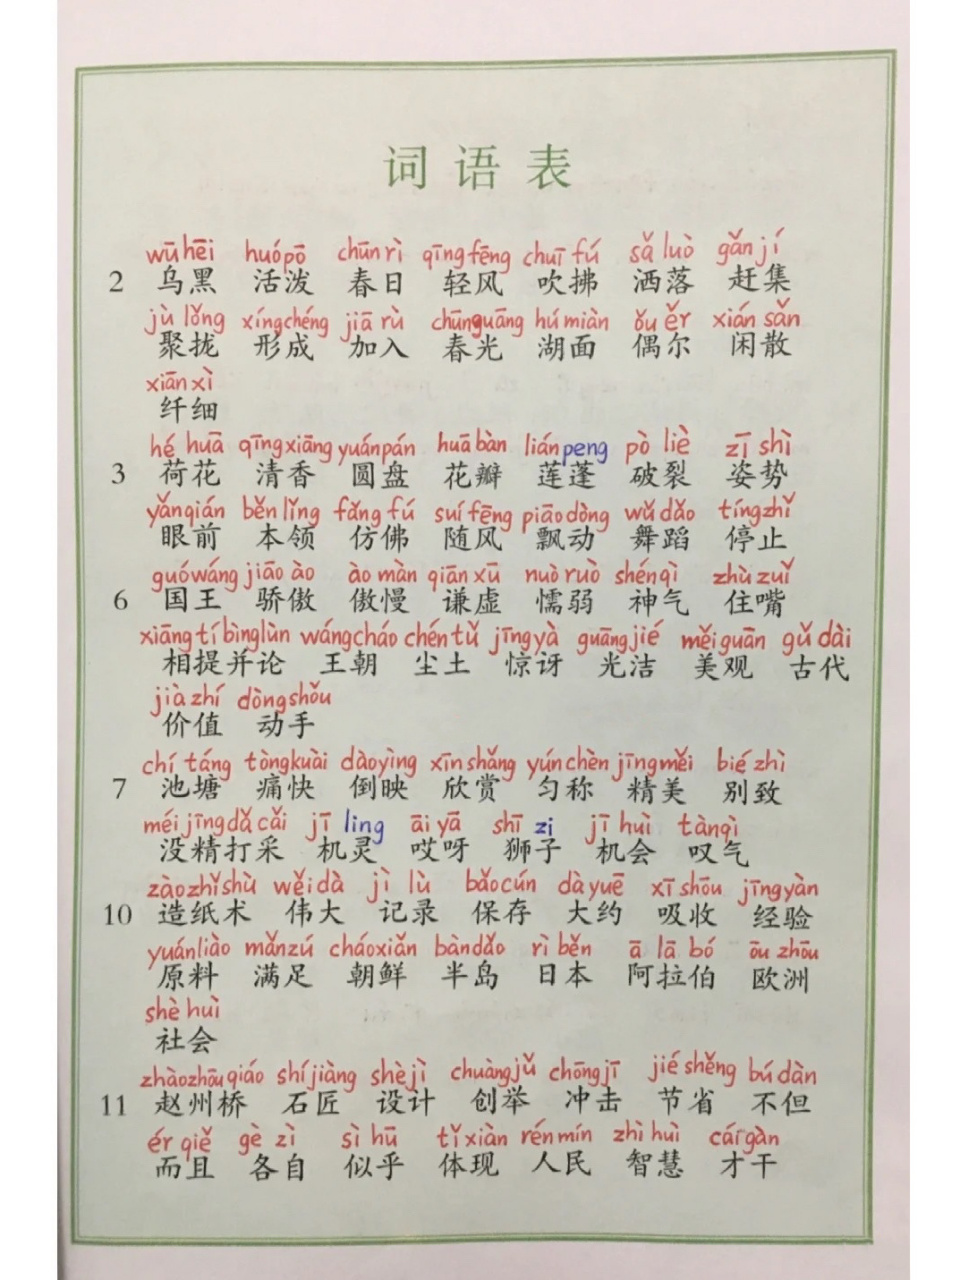 词语表
wūhēi huópō chūnrì qīngfēng chuīfú sǎluò gǎnjí
2 乌黑 活泼 春日 轻风 吹拂 洒落 赶集
jùlǒng xíngchéng jiārù chūnguāng húmiàn ǒuěr xiánsǎn
聚拢 形成 加入 春光 湖面 偶尔 闲散
xiānxì
纤细
héhuā qīngxiāng yuánpán huābàn liánpeng pòliè zīshì
3 荷花 清香 圆盘 花瓣 莲蓬 破裂 姿势
yǎnqián běnlǐng fǎngfú suífēng piāodòng wǔdǎo tíngzhǐ
眼前 本领 仿佛 随风 飘动 舞蹈 停止
guówáng jiāoào àomàn qiānxū nuòruò shénqì zhùzuǐ
6 国王 骄傲 傲慢 谦虚 懦弱 神气 住嘴
xiāngtíbìnglùn wángcháo chéntǔ jīngyà guāngjié měiguān gǔdài
相提并论 王朝 尘土 惊讶 光洁 美观 古代
jiàzhí dòngshǒu
价值 动手
chítáng tòngkuài dàoyìng xīnshǎng yúnchèn jīngměi biézhì
7 池塘 痛快 倒映 欣赏 匀称 精美 别致
méijīngdǎcǎi jīling āiyā shīzi jīhuì tànqì
没精打采 机灵 哎呀 狮子 机会 叹气
zàozhǐshù wěidà jìlù bǎocún dàyuē xīshōu jīngyàn
10 造纸术 伟大 记录 保存 大约 吸收 经验
yuánliào mǎnzú cháoxiǎn bàndǎo rìběn ālābó ōuzhōu
原料 满足 朝鲜 半岛 日本 阿拉伯 欧洲
shèhuì
社会
zhàozhōuqiáo shíjiàng shèjì chuàngjǔ chōngjī jiéshěng búdàn
11 赵州桥 石匠 设计 创举 冲击 节省 不但
érqiě gèzì sìhū tǐxiàn rénmín zhìhuì cáigàn
而且 各自 似乎 体现 人民 智慧 才干